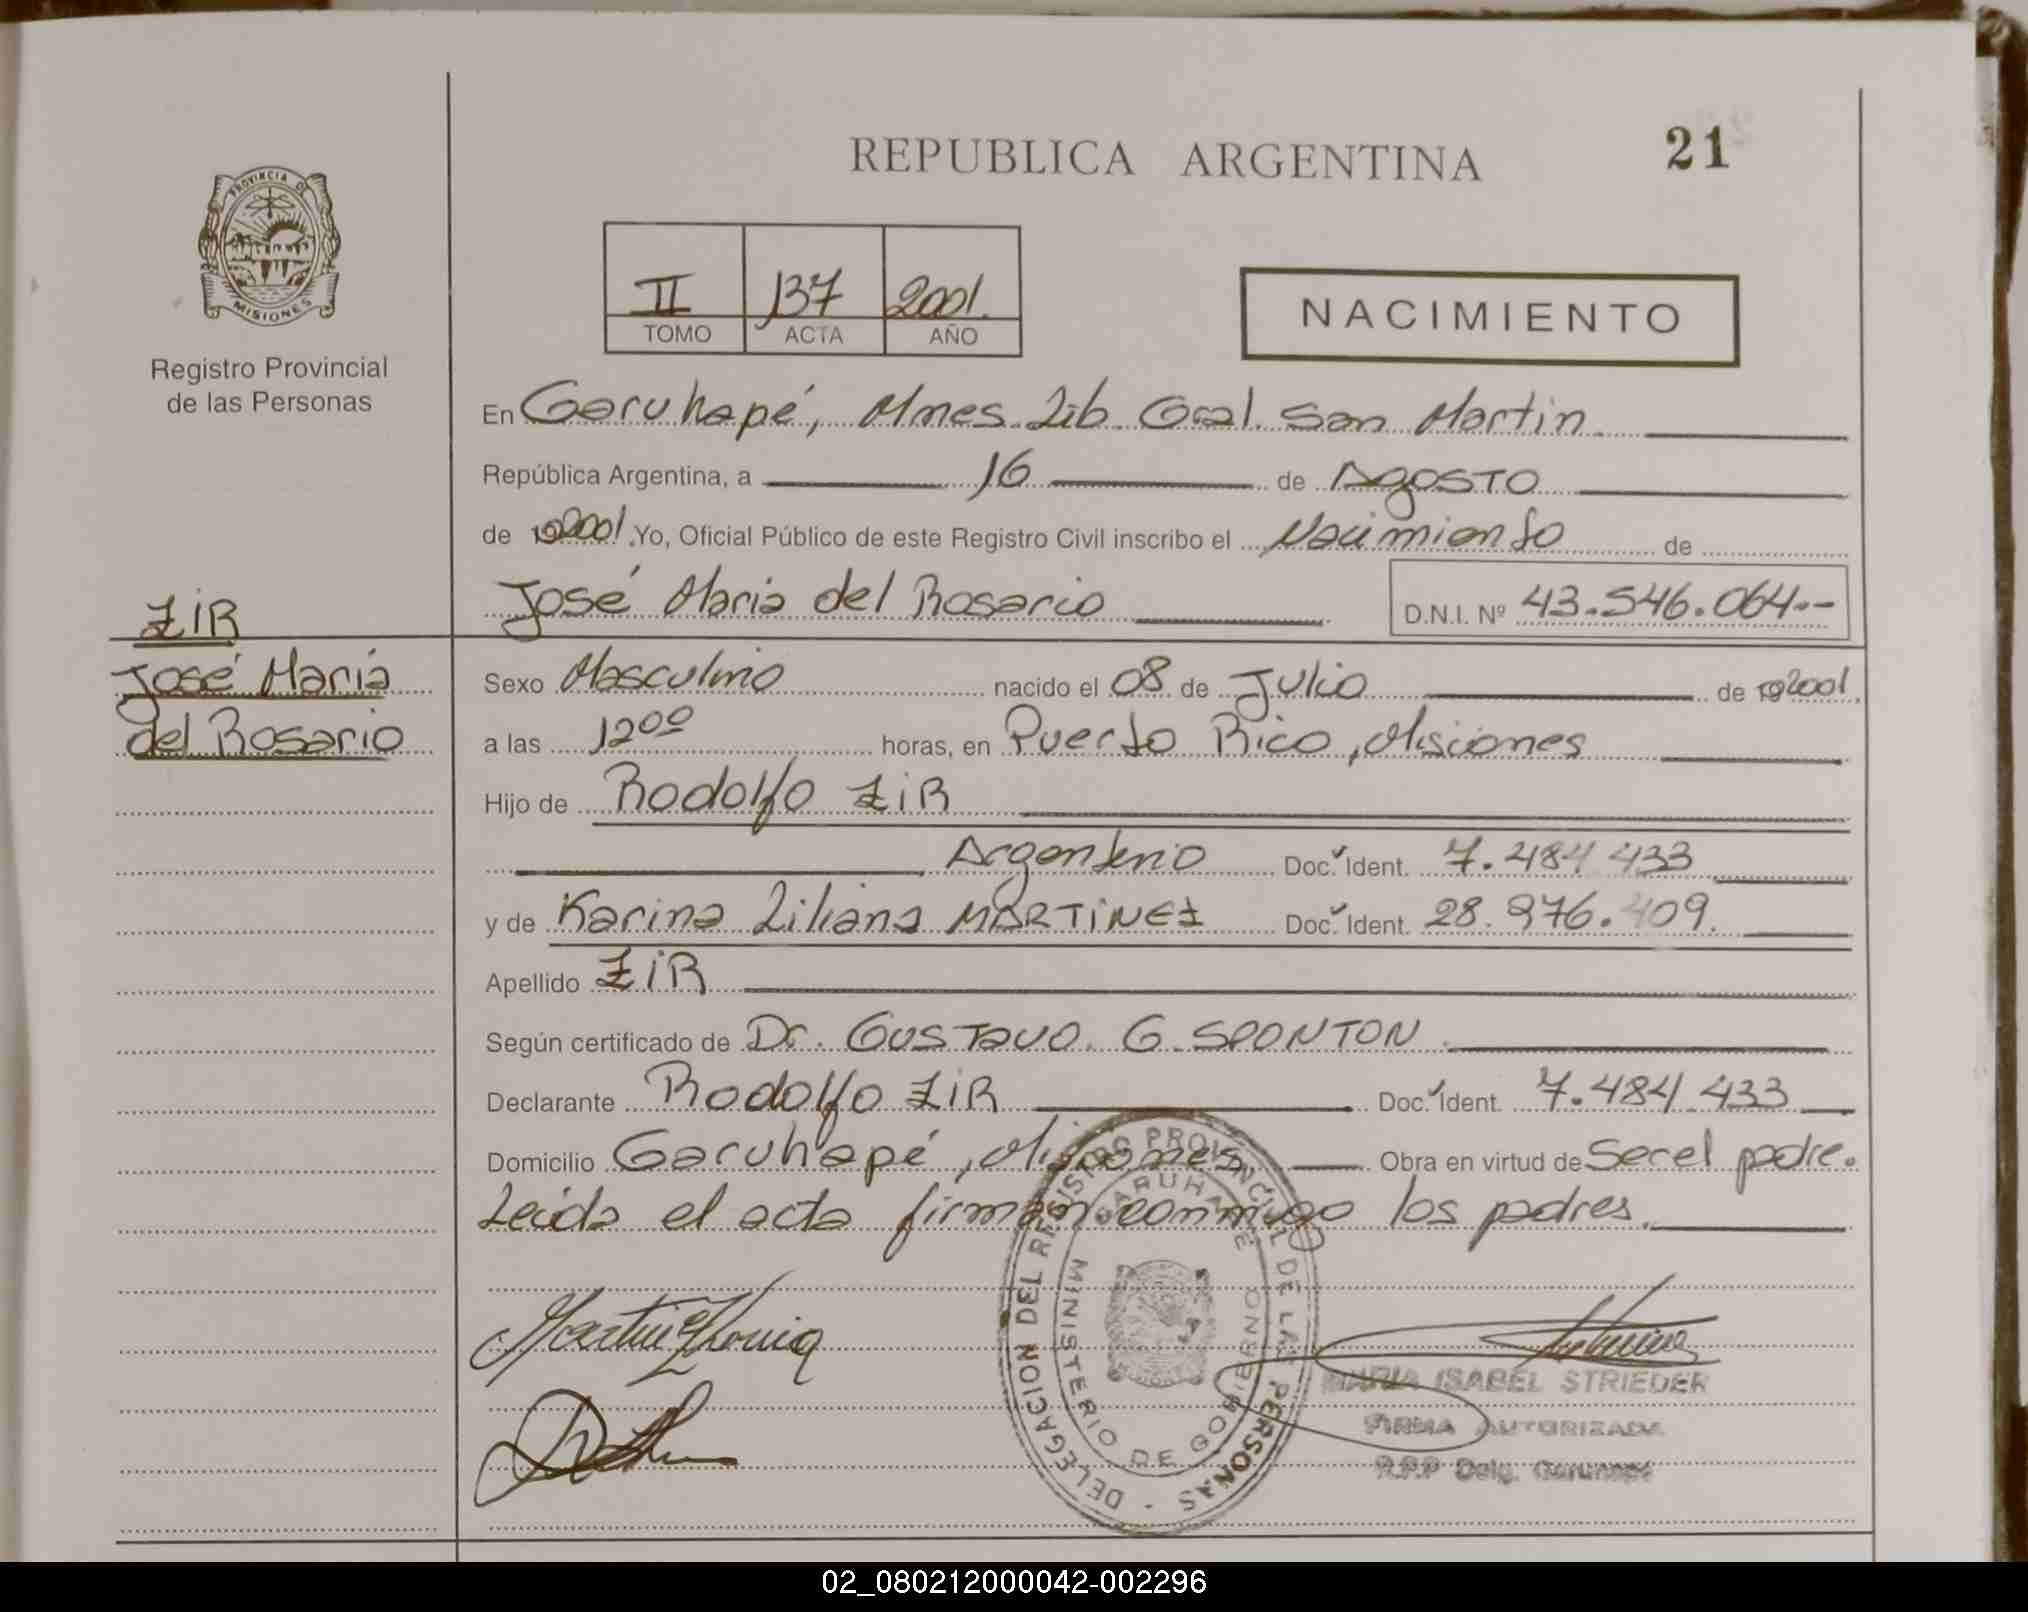 REPUBLICA ARGENTINA
21
PROVINCIA DE
MISIONES
Registro Provincial
de las Personas
II 137 2001.
TOMO ACTA AÑO
NACIMIENTO
En Garuhapé, Mnes. Lib. Gral. San Martin
República Argentina, a 16 de Agosto
de 192001. Yo, Oficial Público de este Registro Civil inscribo el Nacimiento de
José Maria del Rosario D.N.I. Nº 43.546.064.-
ZiR
José María
del Rosario
Sexo Masculino nacido el 08 de Julio de 192001.
a las 12ºº horas, en Puerto Rico, Misiones
Hijo de Rodolfo ZiR
Argentino Doc. Ident. 7.484.433
y de Karina Liliana MARTiNEZ Doc. Ident. 28.976.409.
Apellido ZiR
Según certificado de Dr. GUSTAVO. G. SPONTON
Declarante Rodolfo ZiR Doc. Ident. 7.484.433
Domicilio Garuhapé, Misiones Obra en virtud de Ser el padre.
Leída el acta firman conmigo los padres.
DELEGACION DEL REGISTRO PROVINCIAL DE LAS PERSONAS
GARUHAPE
MINISTERIO DE GOBIERNO
MARIA ISABEL STRIEDER
FIRMA AUTORIZADA
R.P.P Delg. Garuhapé
02_080212000042-002296